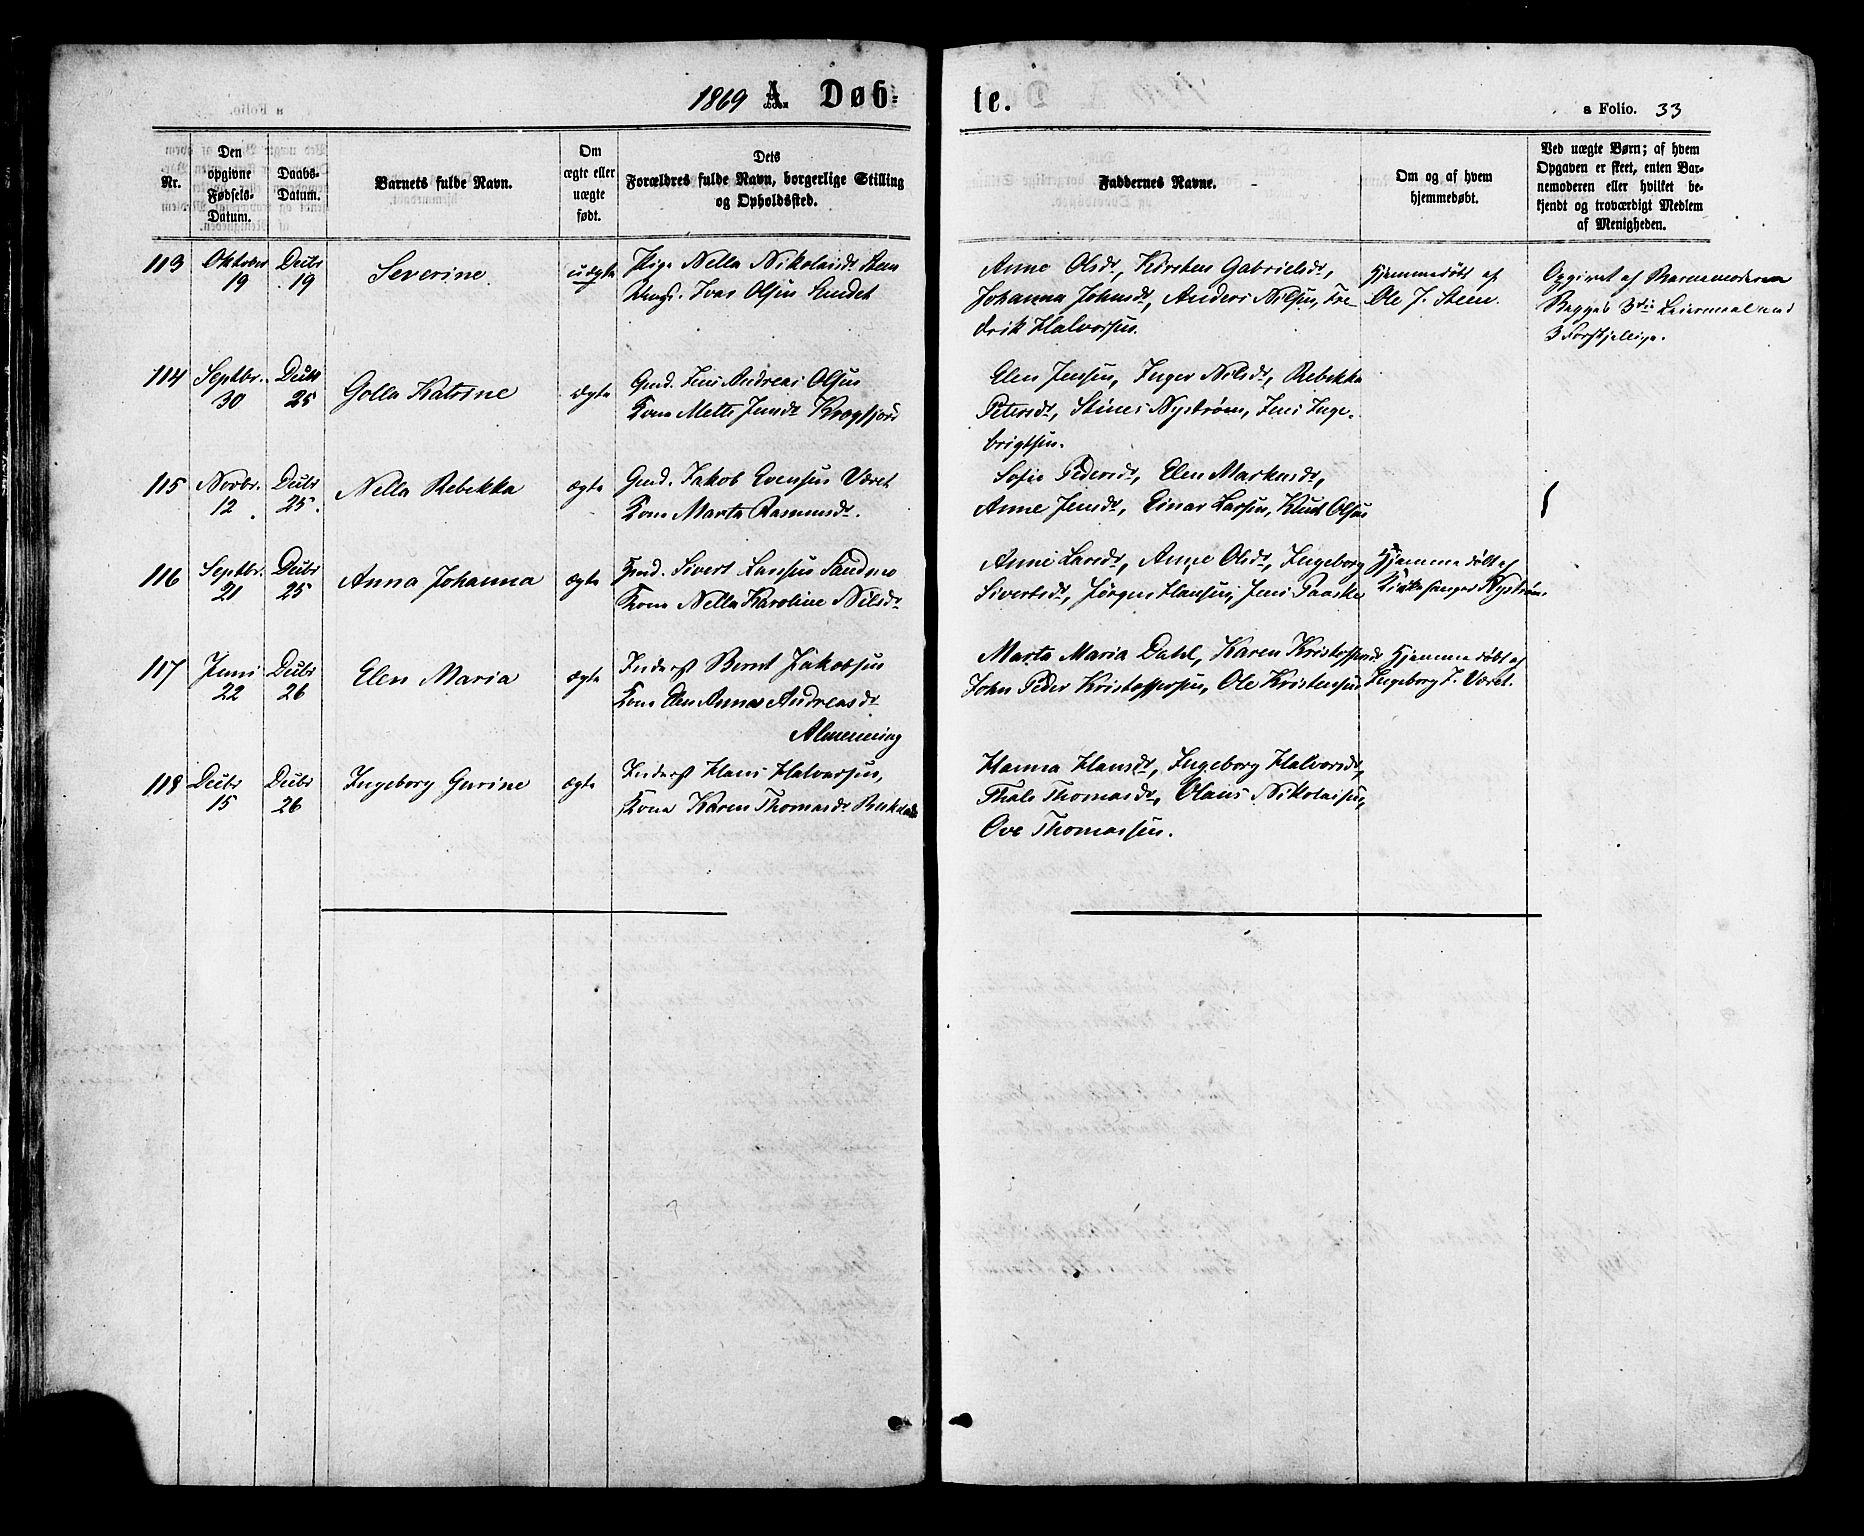 1869 A Døb-
te.
a Folio. 33
Nr.
Den opgivne Fødsels-Datum.
Daabs-Datum.
Barnets fulde Navn.
Om ægte eller uægte født.
Dets Forældres fulde Navn, borgerlige Stilling og Opholdssted.
Faddernes Navne.
Om og af hvem hjemmedøbt.
Ved uægte Børn; af hvem Opgaven er skeet, enten Barnemoderen eller hvilket bekjendt og troværdigt Medlem af Menigheden.
113 Oktober 19 Decbr 19 Severine uægte
Pige Nella Nikolaisdt Steen
Ungk. Ivar Olsen Sundet
Anne Olsdt, Kirsten Gabrielsdt,
Johanna Johnsdt, Anders Nilsen, Fre-
drik Halvorsen.
Hjemmedøbt af
Ole J. Steen.
Opgivet af Barnemoderen
Begges 3die Leiermaal med
3 Forskjellige.
114 Septbr. 30 Decbr 25 Golla Katrine ægte
Gmd. Jens Andreas Olsen
Kone Mette Jensdt Krogfjord
Elen Jensen, Inger Nilsdt, Rebekka
Petersdt, Stines Nystrøm, Jens Inge-
brigtsen.
115 Novbr. 12 Decbr 25 Nella Rebekka ægte
Gmd. Jakob Evensen Været
Kone Marta Rasmusdt.
Sofie Pedersdt, Elen Markusdt,
Anne Jensdt, Einar Larsen, Knut Olsen
116 Septbr. 21 Decbr 25 Anna Johanna ægte
Gmd. Sivert Larsen Sandmo
Kone Nella Karoline Nilsdt
Anne Larsdt, Anne Olsdt, Ingeborg
Sivertsdt, Jørgen Hansen, Jens Paaske
Hjemmedøbt af
Kirkesanger Nystrøm.
117 Juni 22 Decbr 26 Elen Maria ægte
Inderst Bernt Jakobsen
Kone Elen Anna Andreasdt
Almenning
Marta Maria Dahl, Karen Kristoffersdt
John Peder Kristoffersen, Ole Kristensen
Hjemmedøbt af
Ingeborg J. Været.
118 Decbr 15 Decbr 26 Ingeborg Gurine ægte
Inderst Hans Halvorsen,
Kone Karen Thomasdt
Hanna Hansdt, Ingeborg Halvorsdt,
Thale Thomasdt, Olaus Nikolaisen,
Ove Thomassen.